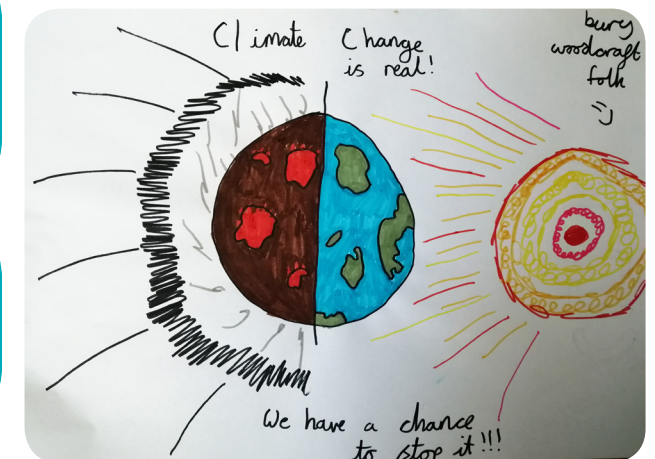 Climate Change
is real!
bury
woodcraft
folk
We have a chance
to stop it!!!